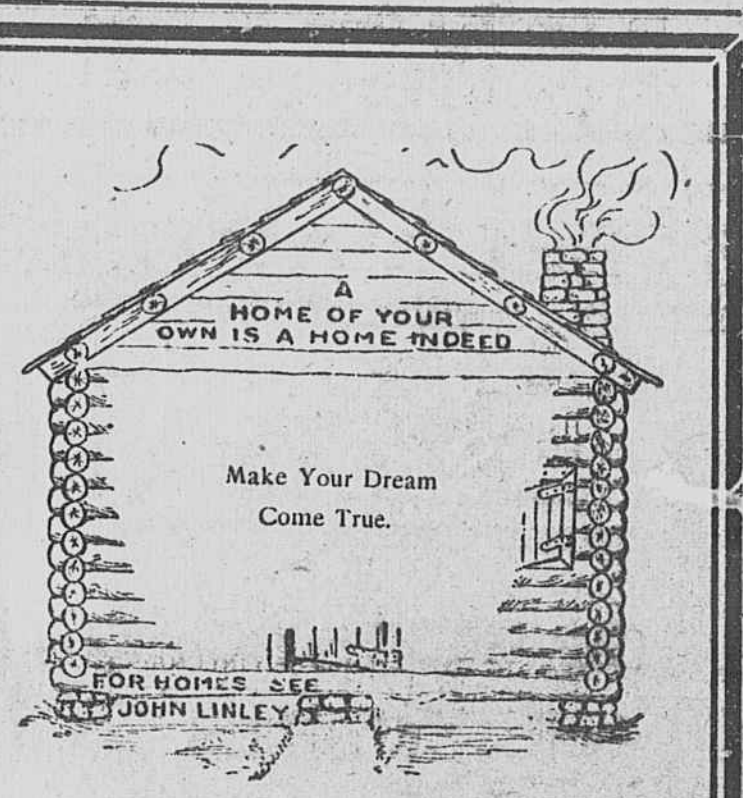 A
HOME OF YOUR
OWN IS A HOME INDEED
Make Your Dream
Come True.
FOR HOMES SEE
JOHN LINLEY